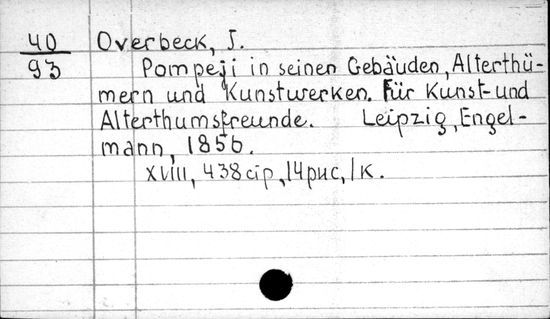 40 Overbeck, J.
93 Pompeji in seinen Gebäuden, Alterthü-
mern und Kunstwerken. Für Kunst- und
Alterthumsfreunde. Leipzig, Engel-
mann, 1856.
XVIII, 438 стр, 14 рис, 1 к.